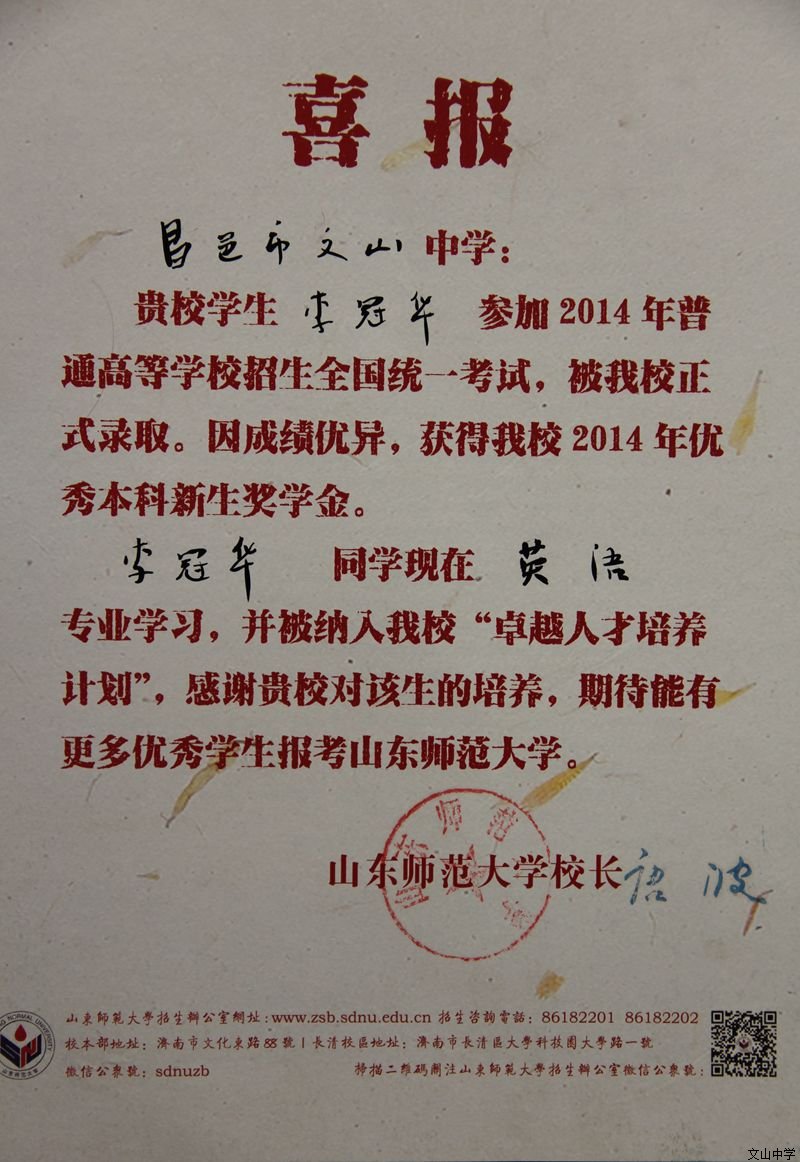 喜报
昌邑市文山中学：
贵校学生 李冠华 参加2014年普
通高等学校招生全国统一考试，被我校正
式录取。因成绩优异，获得我校2014年优
秀本科新生奖学金。
李冠华 同学现在 英语
专业学习，并被纳入我校“卓越人才培养
计划”，感谢贵校对该生的培养，期待能有
更多优秀学生报考山东师范大学。
山东师范大学校长
山東師範大學招生辦公室網址：www.zsb.sdnu.edu.cn 招生咨詢電話：86182201 86182202
校本部地址：濟南市文化東路88號 | 長清校區地址：濟南市長清區大學科技園大學路一號
微信公衆號：sdnuzb 掃描二維碼關注山東師範大學招生辦公室微信公衆號：
文山中学